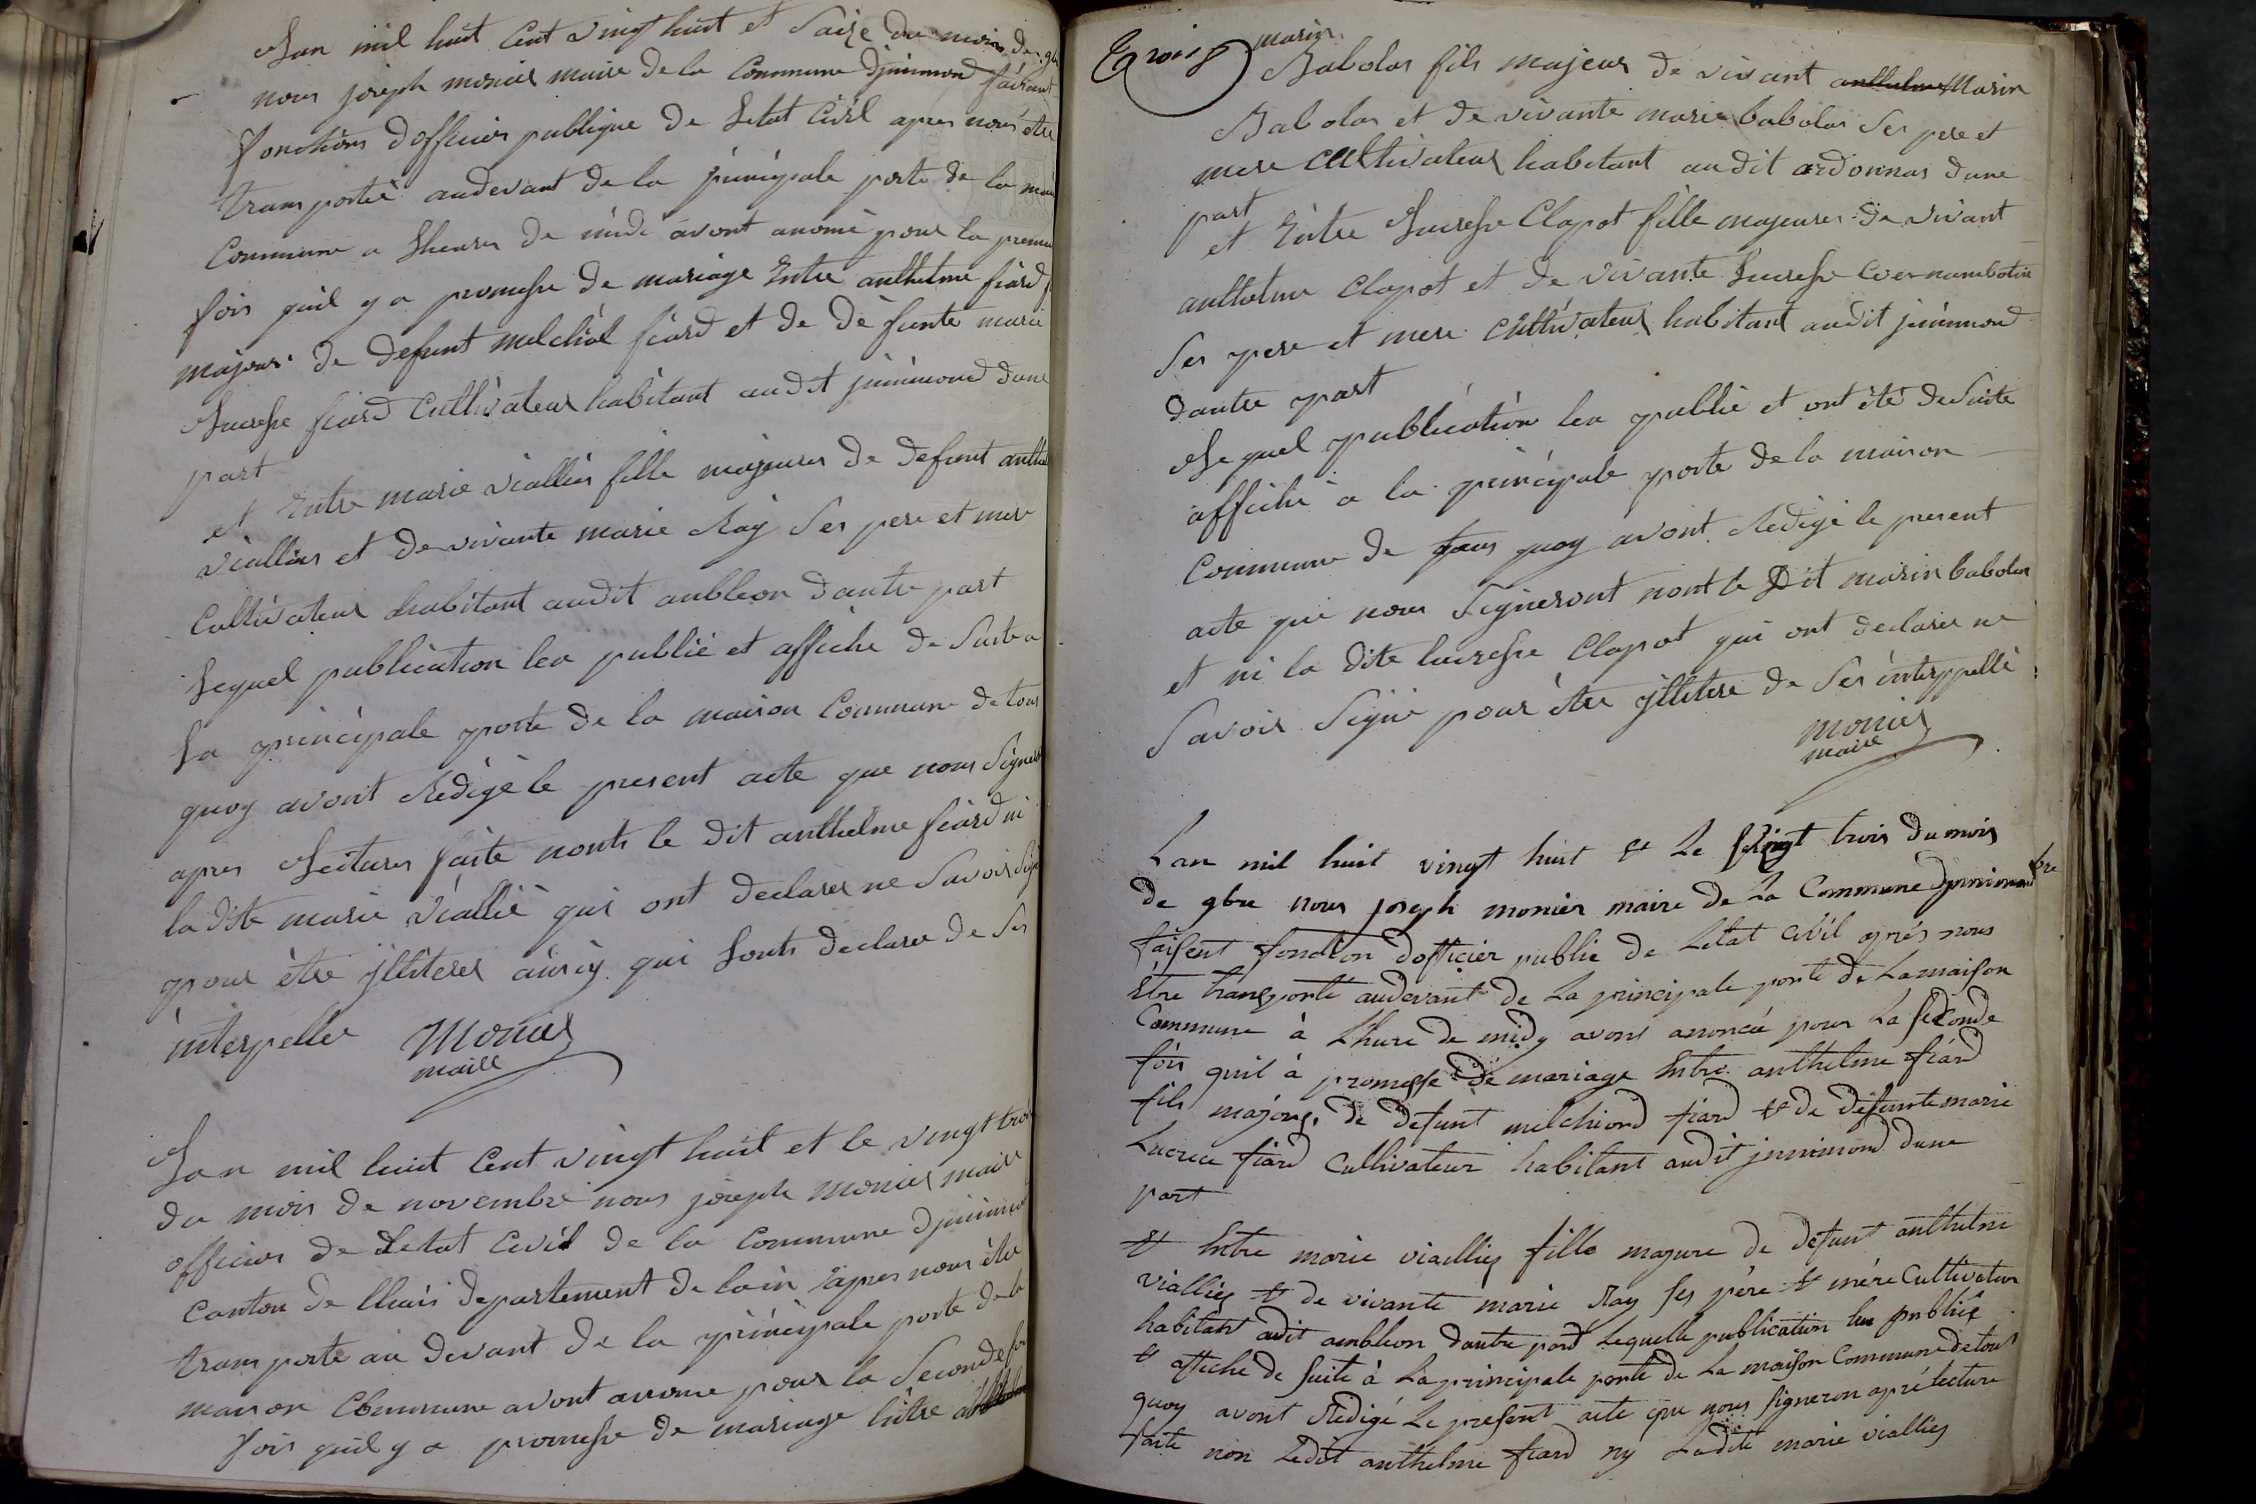 Lan mil huit Cent vingt huit et Saize du mois de 9b
nous joseph monier maire de la Commune djnimond faisant
fonctions dofficier publique de Letat Civil apres nous être
transportée audevant de la principale porte de la mai
Commune a Lheure de midi avont anomé pour la premie
fois quil y a promesse de mariage Entre anthelme fiard f
majeur de defunt melchiol fiard et de défunte marie
Lucresse fiard Cultivateur habitant audit jnnimond dune
part
et Entre marie viallier fille majeure de defunt anthel
viallier et de vivante marie Ray Ses pere et mere
Cultivateur habitant audit aubleon dautre part
Lequel publication lea publié et affiche de Suite a
La principale porte de la maison Commune de tous
quoy avont Redigé le present acte que nous Signer
apres Lecture faite nonts le dit anthelme fiard ni
la dite marie viallié qui ont declarer ne Savoir Sign
pour être jlliterer ainsy qui Lonts declarer de Ses
interpeller Monier
maire
Lan mil huit Cent vingt huit et le vingt troi
du mois de novembre nous joseph monier maire
officier de Letat Civil de la Commune djnimon
Canton de lhuis departement de lain Apres nous être
transporte au devant de la principale porte de la
maison Commune avont anome pour la Seconde foi
fois quil y a promesse de mariage Entre
Trois marin
Babolas fils majeur de vivant anthelme Marin
Babolas et de vivante marie babolas Ses pere et
mere Cultivateur habitant audit ordonnas dune
part
et Entre Lucresse Clapot fille majeure de vivant
anthelme Clapot et de vivante Lucresse
Ses pere et mere Cultivateur habitant audit jnnimond
dautre part
Lequel publication lea publié et ont été de Suite
affiche a la principale porte de la maison
Commune de tous quoy avont Redigé le present
acte que nous Signeront nont le Dit marin babolas
et ni la dite lucresse Clapot qui ont declarer ne
Savoir Signé pour être jlliterer de Ses interppellé
monier
maire
Lan mil huit vingt huit & Le vingt trois du mois
de 9bre nous joseph monier maire de La Commune djnnimond
faisent fonction dofficier public de Letat civil aprés nous
être transporté audevant de La principale porte de La maison
Commune à Lhure de midy avons anoncé pour La seconde
fois quil à promesse de mariage Entre anthelme fiard
fils majeur de defunt melchiord fiard & de défunte marie
Lucrece fiard Cultivateur habitant audit jnnimond dune
part
& Entre marie viallies fille majure de defunt anthelme
viallies & de vivante marie Ray ses père & mère Cultivateur
habitant audit ambléon dautre pard Lequelle publication lue publiée
& affiche de suite à La principale porte de La maison Commune de tous
quoy avont Rédigé Le present acte que nous signeron apré Lecture
faite non Ledit anthelme fiard ny Ladite marie viallies